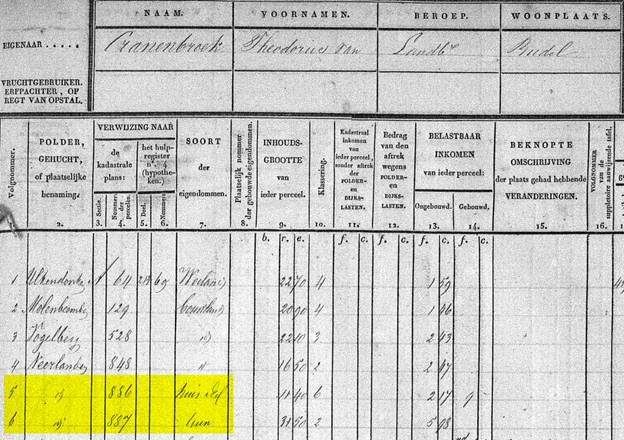 NAAM. VOORNAMEN. BEROEP. WOONPLAATS.
EIGENAAR ..... Cranenbroek Theodorius van Landbr Budel
VRUCHTGEBRUIKER.
ERFPACHTER, OF
REGT VAN OPSTAL.
Volgnommer.
POLDER,
GEHUCHT,
of plaatselijke
benaming.
2.
VERWIJZING NAAR
de
kadastrale
plans:
Sectie.
3.
Nommer
der
perceelen.
4.
het hulp-
register
n°. 4
(hypothe-
ken.)
Deel.
5.
Nommer.
6.
SOORT
der
eigendommen.
7.
Plaatselijk nommer
der gebouwde eigendommen.
8.
INHOUDS-
GROOTTE
van
ieder perceel.
9.
Klassering.
10.
Kadastraal
inkomen
van
ieder perceel,
zonder aftrek
der
POLDER-
EN
DIJKS-
LASTEN.
11.
Bedrag van
den aftrek
wegens
POLDER-
en
DIJKS-
LASTEN.
12.
BELASTBAAR
INKOMEN
van ieder perceel:
Ongebouwd.
13.
Gebouwd.
14.
BEKNOPTE
OMSCHRIJVING
der plaats gehad hebbende
VERANDERINGEN.
15.
VOLGNOMMER
van de
suppletoire aanwijzende tafel.
16.
b. r. e. f. c. f. c. f. c. f. c.
1 64 2270 4 1 59
2 129 2090 4 1 46
3 Vogelberg 528 2210 3 2 43
4 Neerlanden 848 1650 2 2 97
5 886 Huis & Erf 1140 6 2 17 9
6 887 tuin 3150 2 5 98